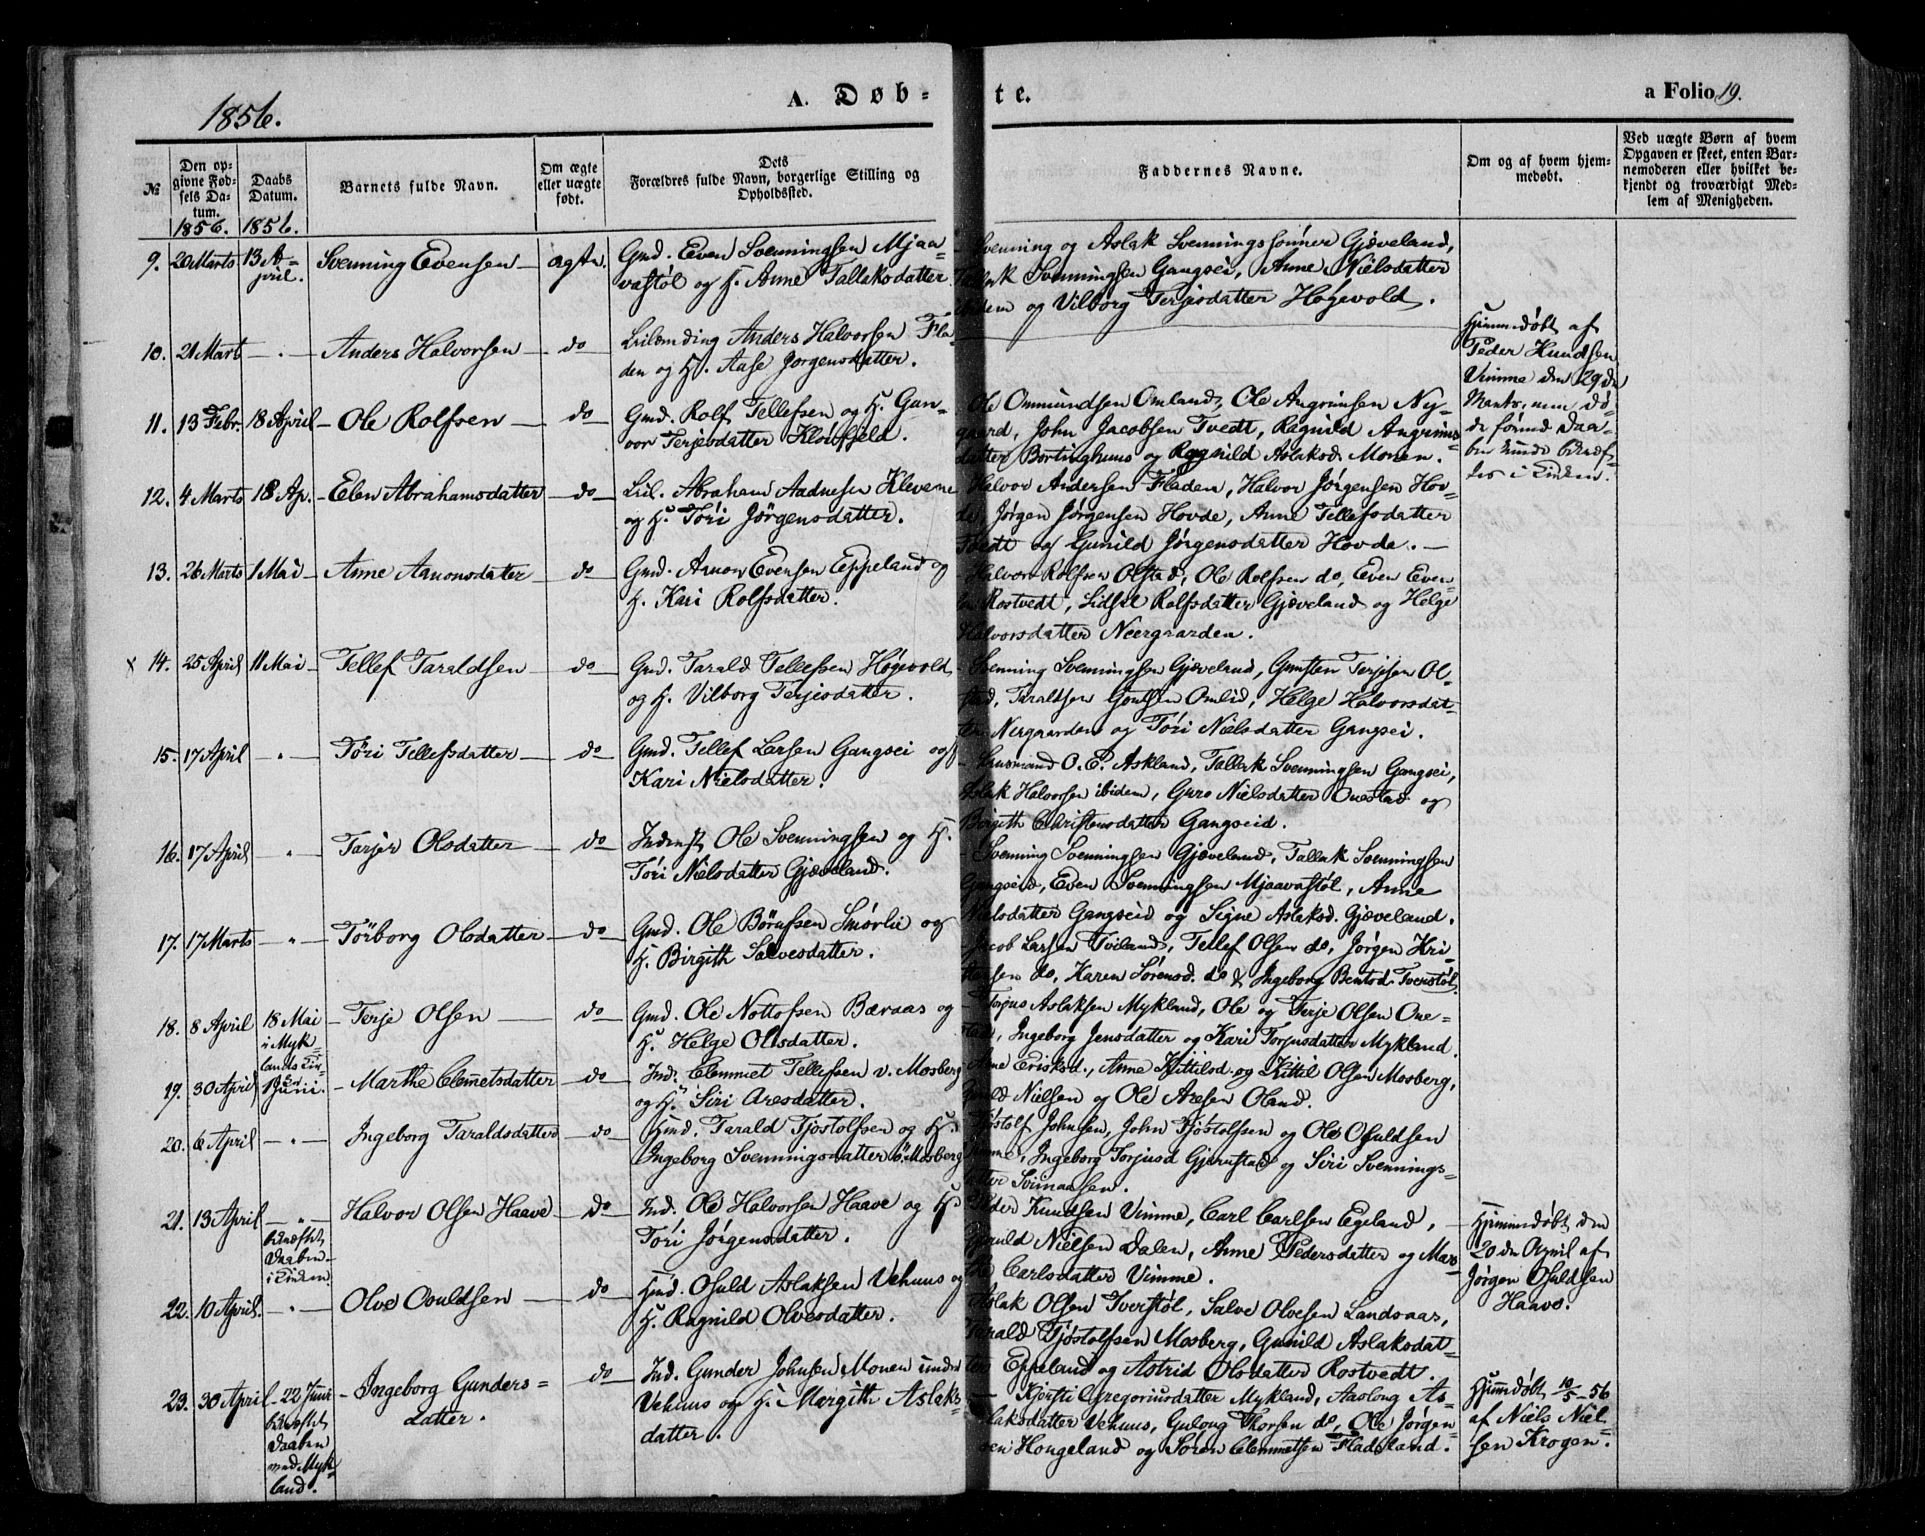 1856.
A. Døb-
te.
a Folio 19.
№
Den op-
givne Fød-
sels Da-
tum.
1856.
Daabs
Datum.
1856.
Barnets fulde Navn.
Om ægte
eller uægte
født.
Dets
Forældres fulde Navn, borgerlige Stilling og
Opholdssted.
Faddernes Navne.
Om og af hvem hjem-
medøbt.
Ved uægte Børn af hvem
Opgaven er skeet, enten Bar-
nemoderen eller hvilket be-
kjendt og troværdigt Med-
lem af Menigheden.
9. 20 Marts 13 A-
pril.
Svenning Evensen
ægte.
Gmd. Even Svenningsen Mjaa-
vastøl og H. Anne Tallaksdatter
Svenning og Aslak Svenningssønner Gjæveland,
Tallak Svenningsen Gangsei, Anne Nielsdatter
ibidem og Vilborg Terjesdatter Høgevold.
10. 21 Mart - " -
Anders Halvorsen
do
Leilænding Anders Halvorsen Fla-
den og H. Aase Jørgensdatter.
Hjemmedøbt af
Peder Knudsen
Vimme den 29de
Marts, men dø-
de førend Daa-
ben kunde bekræf-
tes i Kirken.
11. 13 Febr. 18 April
Ole Rolfsen
do
Gmd. Rolf Tellefsen og H. Gun-
vor Terjesdatter Kløvfjeld.
Ole Ommundsen Omland, Ole Angrimsen Ny-
gaard, John Jacobsen Tvedt, Ragnild Angrims-
datter Bortinghuus og Ragnild Aslaksd. Monen.
12. 4 Marts 18 Ap.
Elen Abrahamsdatter
do
Leil. Abraham Aadnesen Klevene
og H. Tøri Jørgensdatter.
Halvor Andersen Fladen, Halvor Jørgensen Hov-
de, Jørgen Jørgensen Hovde, Anne Tellefsdatter
Tvedt og Gunild Jørgensdatter Hovde.
13. 26 Marts 1 Mai
Anne Aanonsdatter
do
Gmd. Aanon Evensen Eppeland og
H. Kari Rolfsdatter.
Halvor Rolfsen Olstad, Ole Rolfsen do, Even Even-
sen Rostvedt, Sidsel Rolfsdatter Gjæveland og Helge
Halvorsdatter Neergaarden.
x 14. 25 April 11 Mai
Tellef Taraldsen
do
Gmd. Tarald Tellefsen Høgevold
og H. Vilborg Terjesdatter.
Svenning Svenningsen Gjæveland, Gunsten Terjesen Ol-
stad, Taraldsen Omlid, Helge Halvorsdat-
ter Nergaarden og Tøri Nielsdatter Gangsei.
15. 17 April - " -
Tøri Tellefsdatter
do
Gmd. Tellef Larsen Gangsei og H
Kari Nielsdatter.
Lensmand O. E. Askland, Tallak Svenningsen Gangsei,
Aslak Halvorsen ibidem, Guro Nielsdatter Onestad og
Birgith Christensdatter Gangseid.
16. 17 April "
Tarjer Olsdatter
do
Inderst Ole Svenningsen og H.
Tøri Nielsdatter Gjæveland.
Svenning Svenningsen Gjæveland, Tallak Svenningsen
Gangseid, Even Svenningsen Mjaavastøl, Anne
Nielsdatter Gangseid og Signe Aslaksd. Gjæveland.
17. 17 Marts - " -
Törborg Olsdatter
do
Gmd. Ole Børufsen Smørlie og
H. Birgith Salvesdatter.
Jacob Larsen Toiland, Tellef Olsen do, Jørgen Kri-
stensen do, Karen Sørensd. do & Ingeborg Bentsd. Tverstøl.
18. 8 April 18 Mai
i Myk-
lands Kir-
ken
Terje Olsen
do
Gmd. Ole Nottofsen Bæraas og
H. Helge Olesdatter.
Torjus Aslaksen Mykland, Ole og Terje Olsen One-
stad, Ingeborg Jensdatter og Kari Torjusdatter Mykland.
19. 30 April 1 Juni.
Marthe Clemetsdatter
do
Ind. Clemmet Tellefsen v. Mosberg
og H. Siri Aresdatter.
Anne Eriksd., Anne Kittilsd. og Kittil Olsen Mosberg,
Nielsen og Ole Aresen Oland.
20. 6 April - " -
Ingeborg Taraldsdatter
do
Gmd. Tarald Tjøstolfsen og H.
Ingeborg Svenningsdatter Mosberg
Tjøstolf Johnsen, John Tjøstolfsen og Ole Osuldsen
Ingeborg Torjusd Gjernstad og Siri Svennings-
datter
21. 13 April - " -
bekræftet
Daaben
i Kirken
Halvor Olsen Haave
do
Ind. Ole Halvorsen Haave og H.
Tøri Jørgensdatter.
Peder Knudsen Vimme, Carl Carlsen Egeland,
Nielsen Dalen, Anne Pedersdatter og Mar-
the Carlsdatter Vimme.
Hjemmedøbt den
20 de April af
Jørgen Osuldsen
Haave.
22. 10 April. - " -
Olve Osuldsen
do
Gmd. Osuld Aslaksen Vehuus og
H. Ragnild Olvesdatter.
Aslak Olsen Tverstøl, Salve Olvesen Landsaas,
Tarald Tjøstolfsen Mosberg, Gunild Aslaksdat-
ter Eppeland og Astrid Olsdatter Rostvedt.
23. 30 April 22 Juni
bekræftet
Daaben
ved Myk-
land.
Ingeborg Gunders-
datter.
do
Ind. Gunder Johnsen Monen under
Vehuus og H. Margith Aslaks-
datter.
Kjersti Gregoriusdatter Mykland, Aasloug As-
laksdatter Vehuus, Guloug Thorsen do, Ole Jørgen-
sen Hougeland og Søren Clemmetsen Fladeland.
Hjemdøbt 10/5 - 56
af Niels Niel-
sen Krogen.